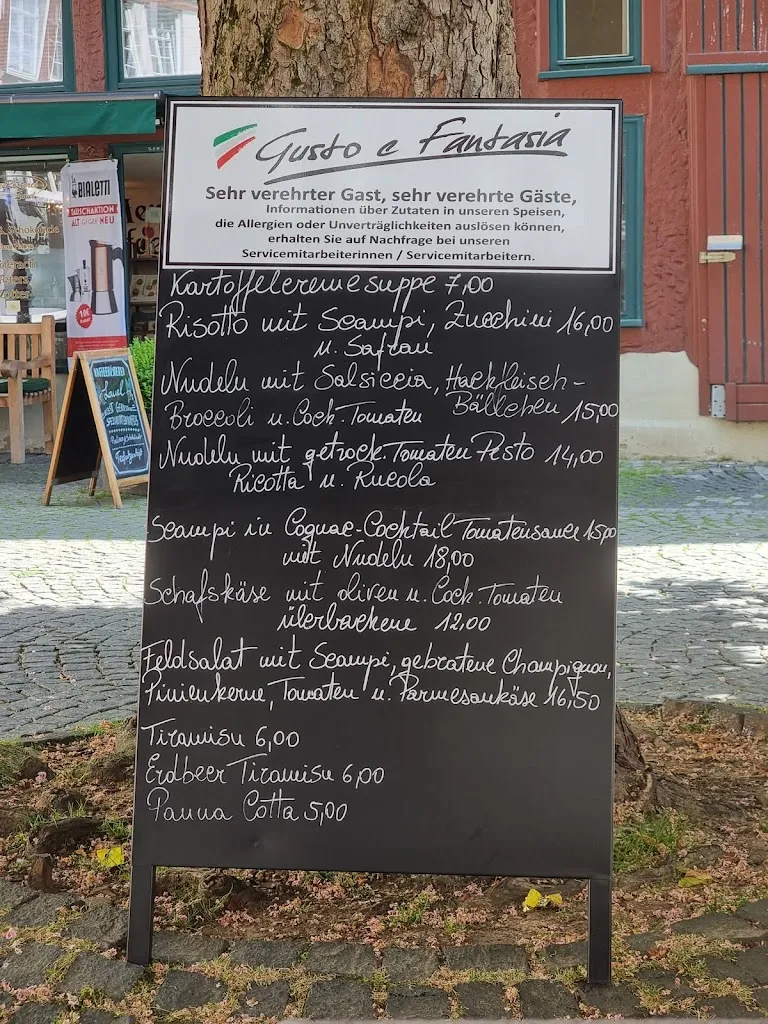 Gusto e Fantasia
Sehr verehrter Gast, sehr verehrte Gäste,
Informationen über Zutaten in unseren Speisen,
die Allergien oder Unverträglichkeiten auslösen können,
erhalten Sie auf Nachfrage bei unseren
Servicemitarbeiterinnen / Servicemitarbeitern.
Kartoffelcremesuppe 7,00
Risotto mit Scampi, Zucchini 16,00
u. Safran
Nudeln mit Salsiccia, Hackfleisch-
Bällchen 15,00
Broccoli u. Cock. Tomaten
Nudeln mit getrock. Tomaten Pesto 14,00
Ricotta u. Rucola
Scampi in Cognac-Cocktail Tomatensauce 15,00
mit Nudeln 18,00
Schafskäse mit oliven u. Cock. Tomaten
überbackene 12,00
Feldsalat mit Scampi, gebratene Champignon,
Pinienkerne, Tomaten u. Parmesankäse 16,50
Tiramisu 6,00
Erdbeer Tiramisu 6,00
Panna Cotta 5,00
BIALETTI
TAUSCHAKTION
ALT GEGEN NEU
10€